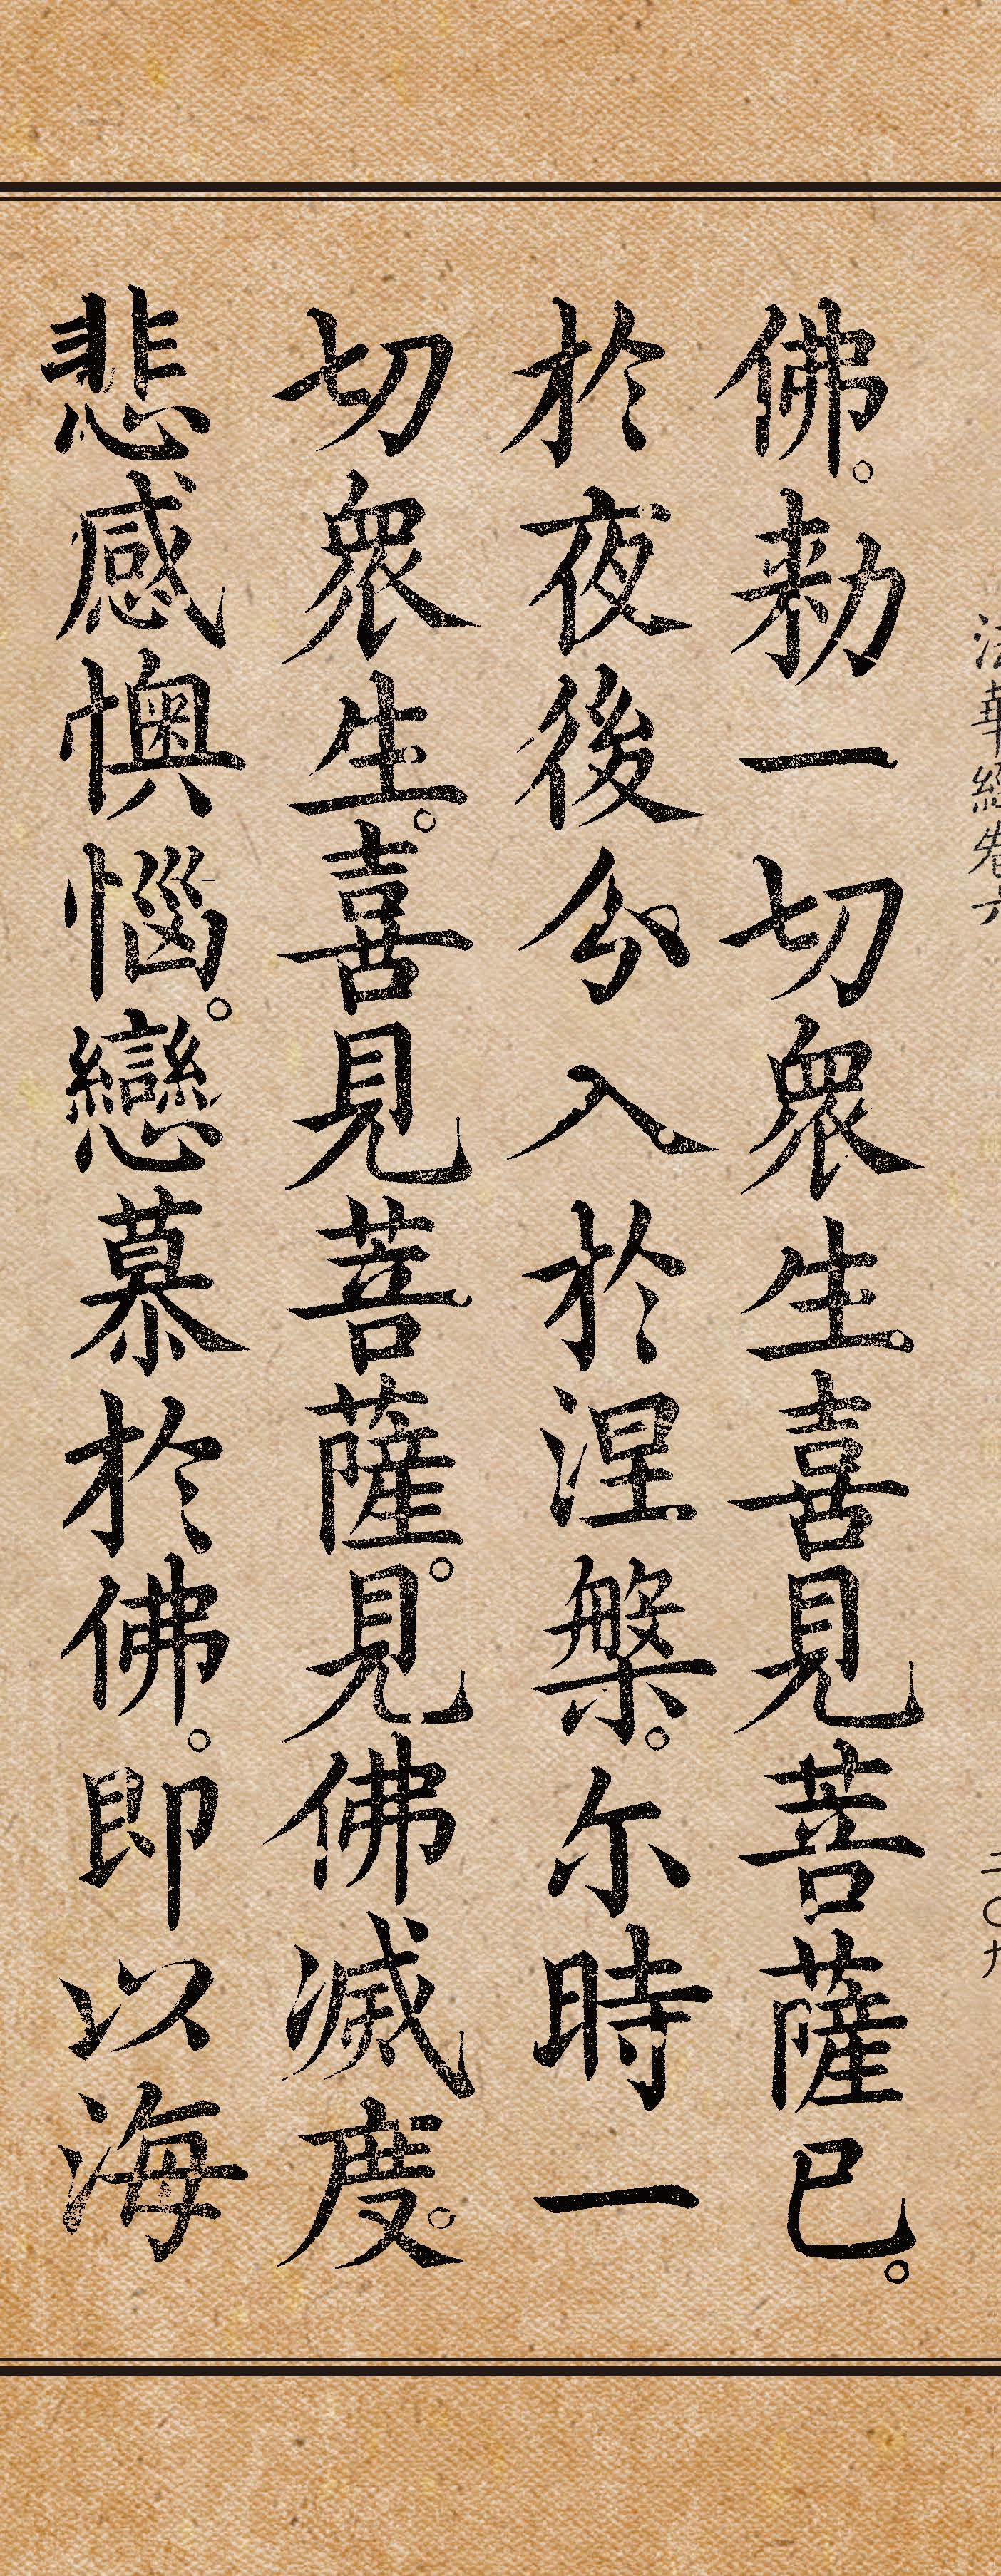 法華經卷六 二〇九
佛。勑一切衆生。喜見菩薩已。
於夜後分入於涅槃。尒時一
切衆生。喜見菩薩。見佛滅度。
悲感懊惱。戀慕於佛。即以海